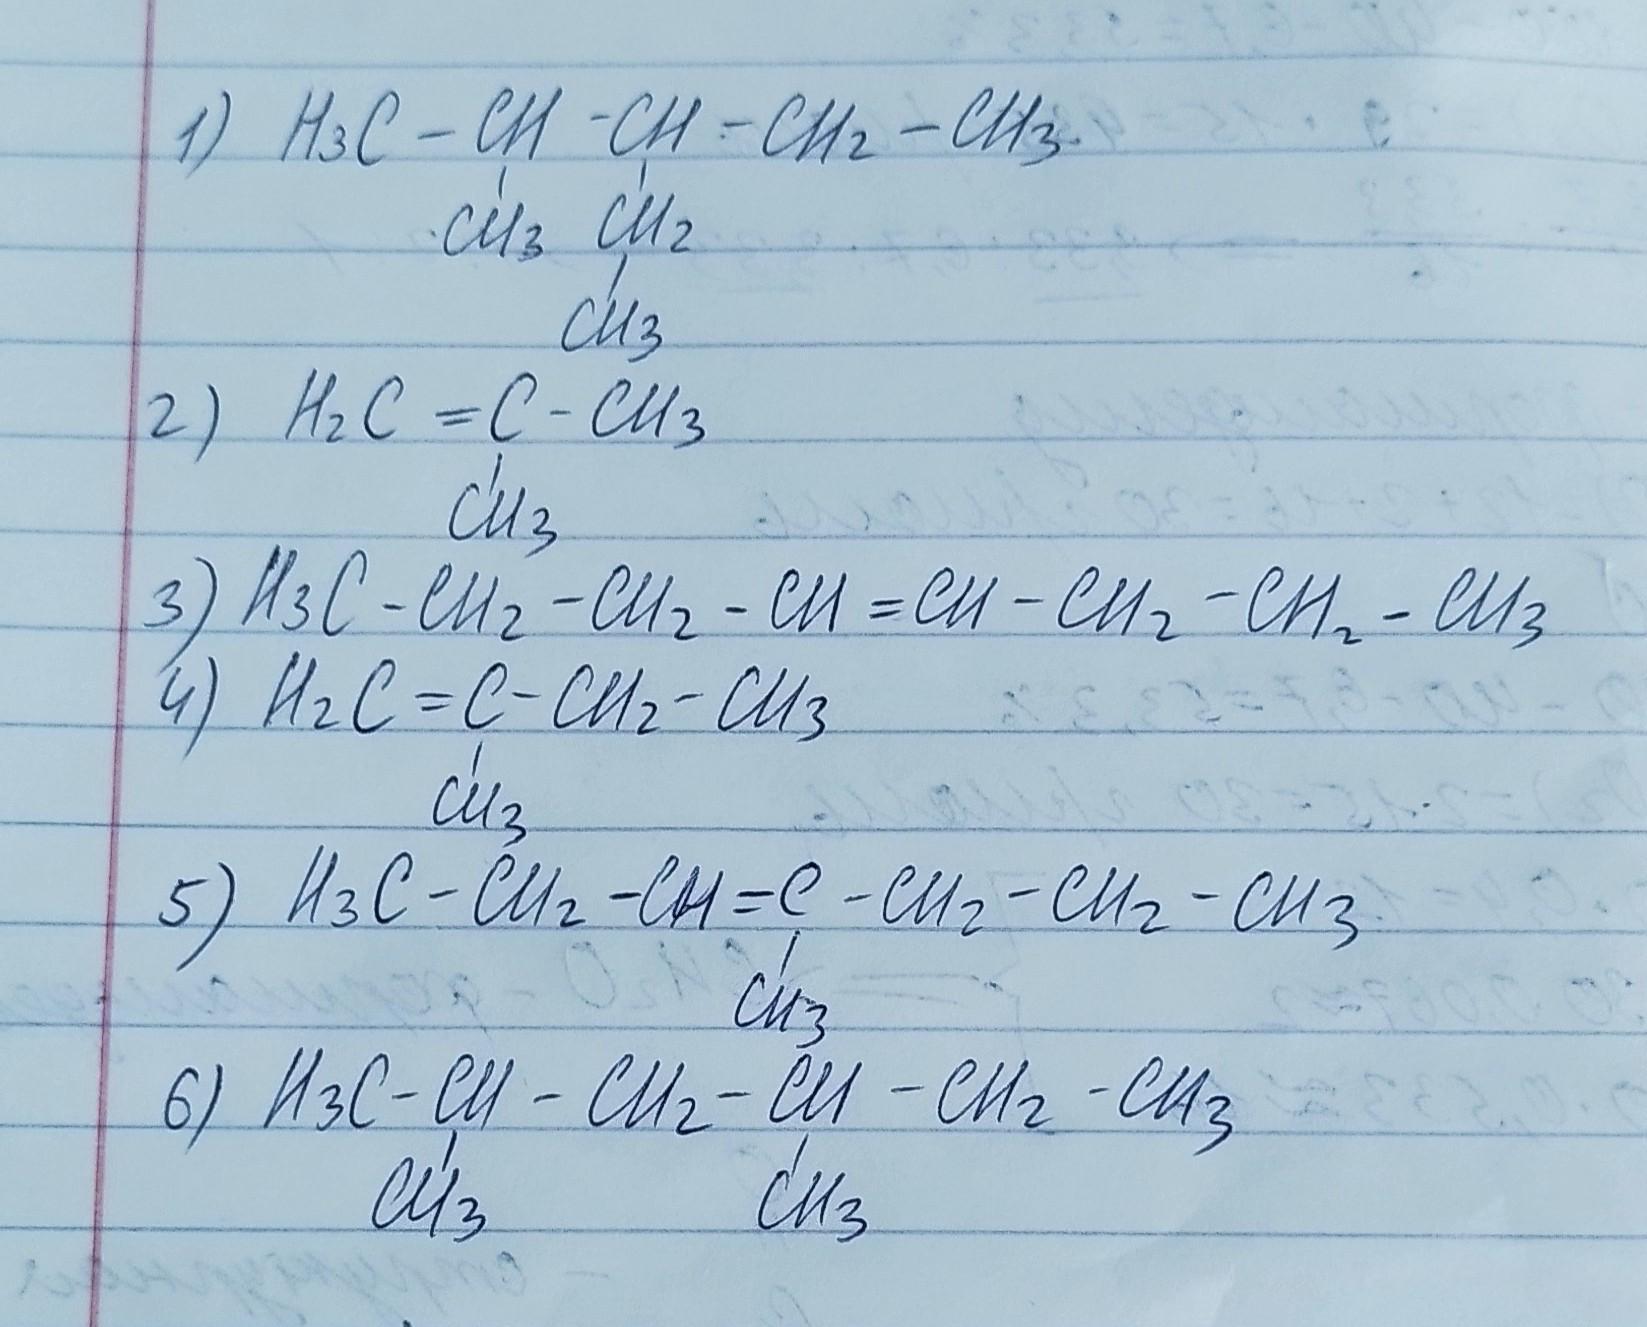 1) H3C - CH - CH - CH2 - CH3
CH3 CH2
CH3
2) H2C = C - CH3
CH3
3) H3C - CH2 - CH2 - CH = CH - CH2 - CH2 - CH3
4) H2C = C - CH2 - CH3
CH3
5) H3C - CH2 - CH = C - CH2 - CH2 - CH3
CH3
6) H3C - CH - CH2 - CH - CH2 - CH3
CH3 CH3